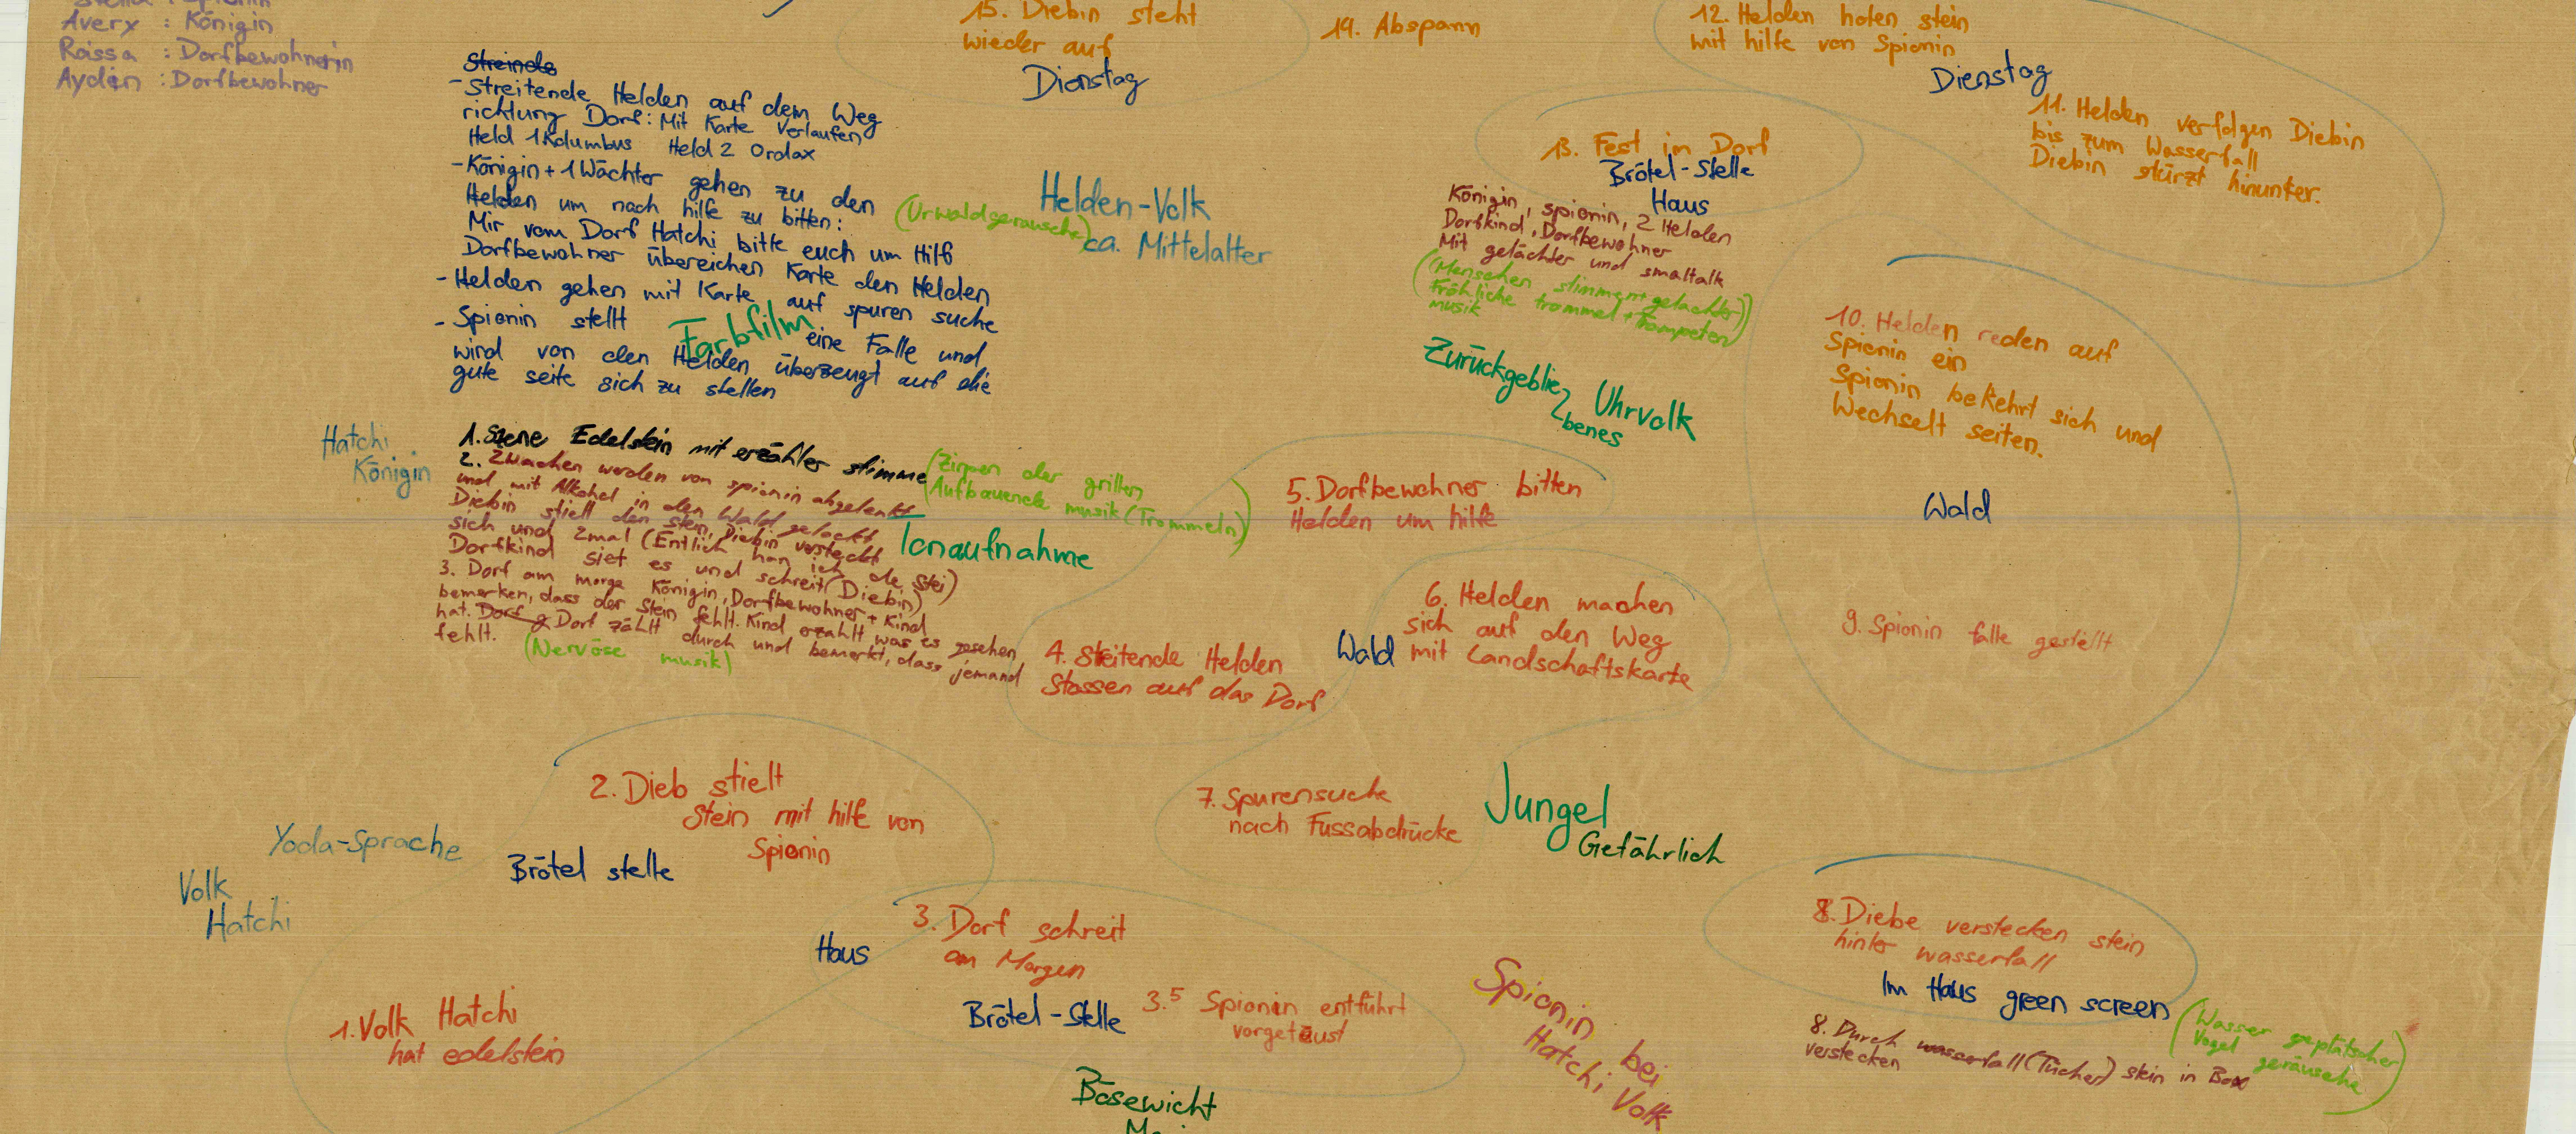 Averx : Königin
Raissa : Dorfbewohnerin
Ayden : Dorfbewohner
15. Diebin steht
wieder auf
Dienstag
19. Abspann
12. Helden holen stein
mit hilfe von Spionin
Dienstag
11. Helden verfolgen Diebin
bis zum Wasserfall
Diebin stürzt hinunter.
Streinde
- Streitende Helden auf dem Weg
richtung Dorf: Mit Karte Verlaufen
Held 1 Kolumbus Held 2 Ordax
- Königin + 1 Wächter gehen zu den
Helden um nach hilfe zu bitten:
Mir vom Dorf Hatchi bitte euch um Hilf
Dorfbewohner übereichen Karte den Helden
- Helden gehen mit Karte auf spuren suche
- Spionin stellt eine Falle und
wird von den Helden überzeugt auf die
gute seite sich zu stellen
Farbfilm
(Urwaldgeräusche)
Helden-Volk
ca. Mittelalter
13. Fest im Dorf
Brötel-Stelle
Haus
Königin, spionin, 2 Helden
Dorfkind, Dorfbewohner
Mit gelächter und smaltalk
(Menschen stimmen + gelächter)
fröhliche trommel + Trompeten)
musik
Zurückgeblie
benes
Uhrvolk
10. Helden reden auf
Spionin ein
Spionin bekehrt sich und
Wechselt seiten.
Wald
9. Spionin falle gestellt
Hatchi
Königin
1. Szene Edelstein mit erzähler stimme
(Zirpen der grillen
Aufbauende musik (Trommeln)
2. 2 Wachen werden von spionin abgelenkt
und mit Alkohol in den Wald gelockt
Diebin stiell den stein, Diebin versteckt
sich und 2mal (Entlich han ich de stei)
Dorfkind siet es und schreit (Diebin)
3. Dorf am morge Königin, Dorfbewohner + Kind
bemerken, dass der Stein fehlt. Kind erzählt was es gesehen
hat. Dorf Dorf zählt durch und bemerkt, dass jemand
fehlt.
(Nervöse musik)
Tonaufnahme
5. Dorfbewohner bitten
Helden um hilfe
6. Helden machen
sich auf den Weg
mit Landschaftskarte
Wald
4. Streitende Helden
Stossen auf das Dorf
2. Dieb stielt
Stein mit hilfe von
Spionin
Brötel stelle
Yoda-Sprache
Volk
Hatchi
7. Spurensuche
nach Fussabdrücke
Jungel
Gefährlich
3. Dorf schreit
am Morgen
Haus
Brötel-Stelle
3.5 Spionin entführt
vorgetäust
1. Volk Hatchi
hat edelstein
8. Diebe verstecken stein
hinter wasserfall
Im Haus green screen
(Wasser geplätscher
Vogel geräusche)
8. Durch wasserfall (Tücher) stein in Box
verstecken
Spionin bei
Hatchi Volk
Bösewicht